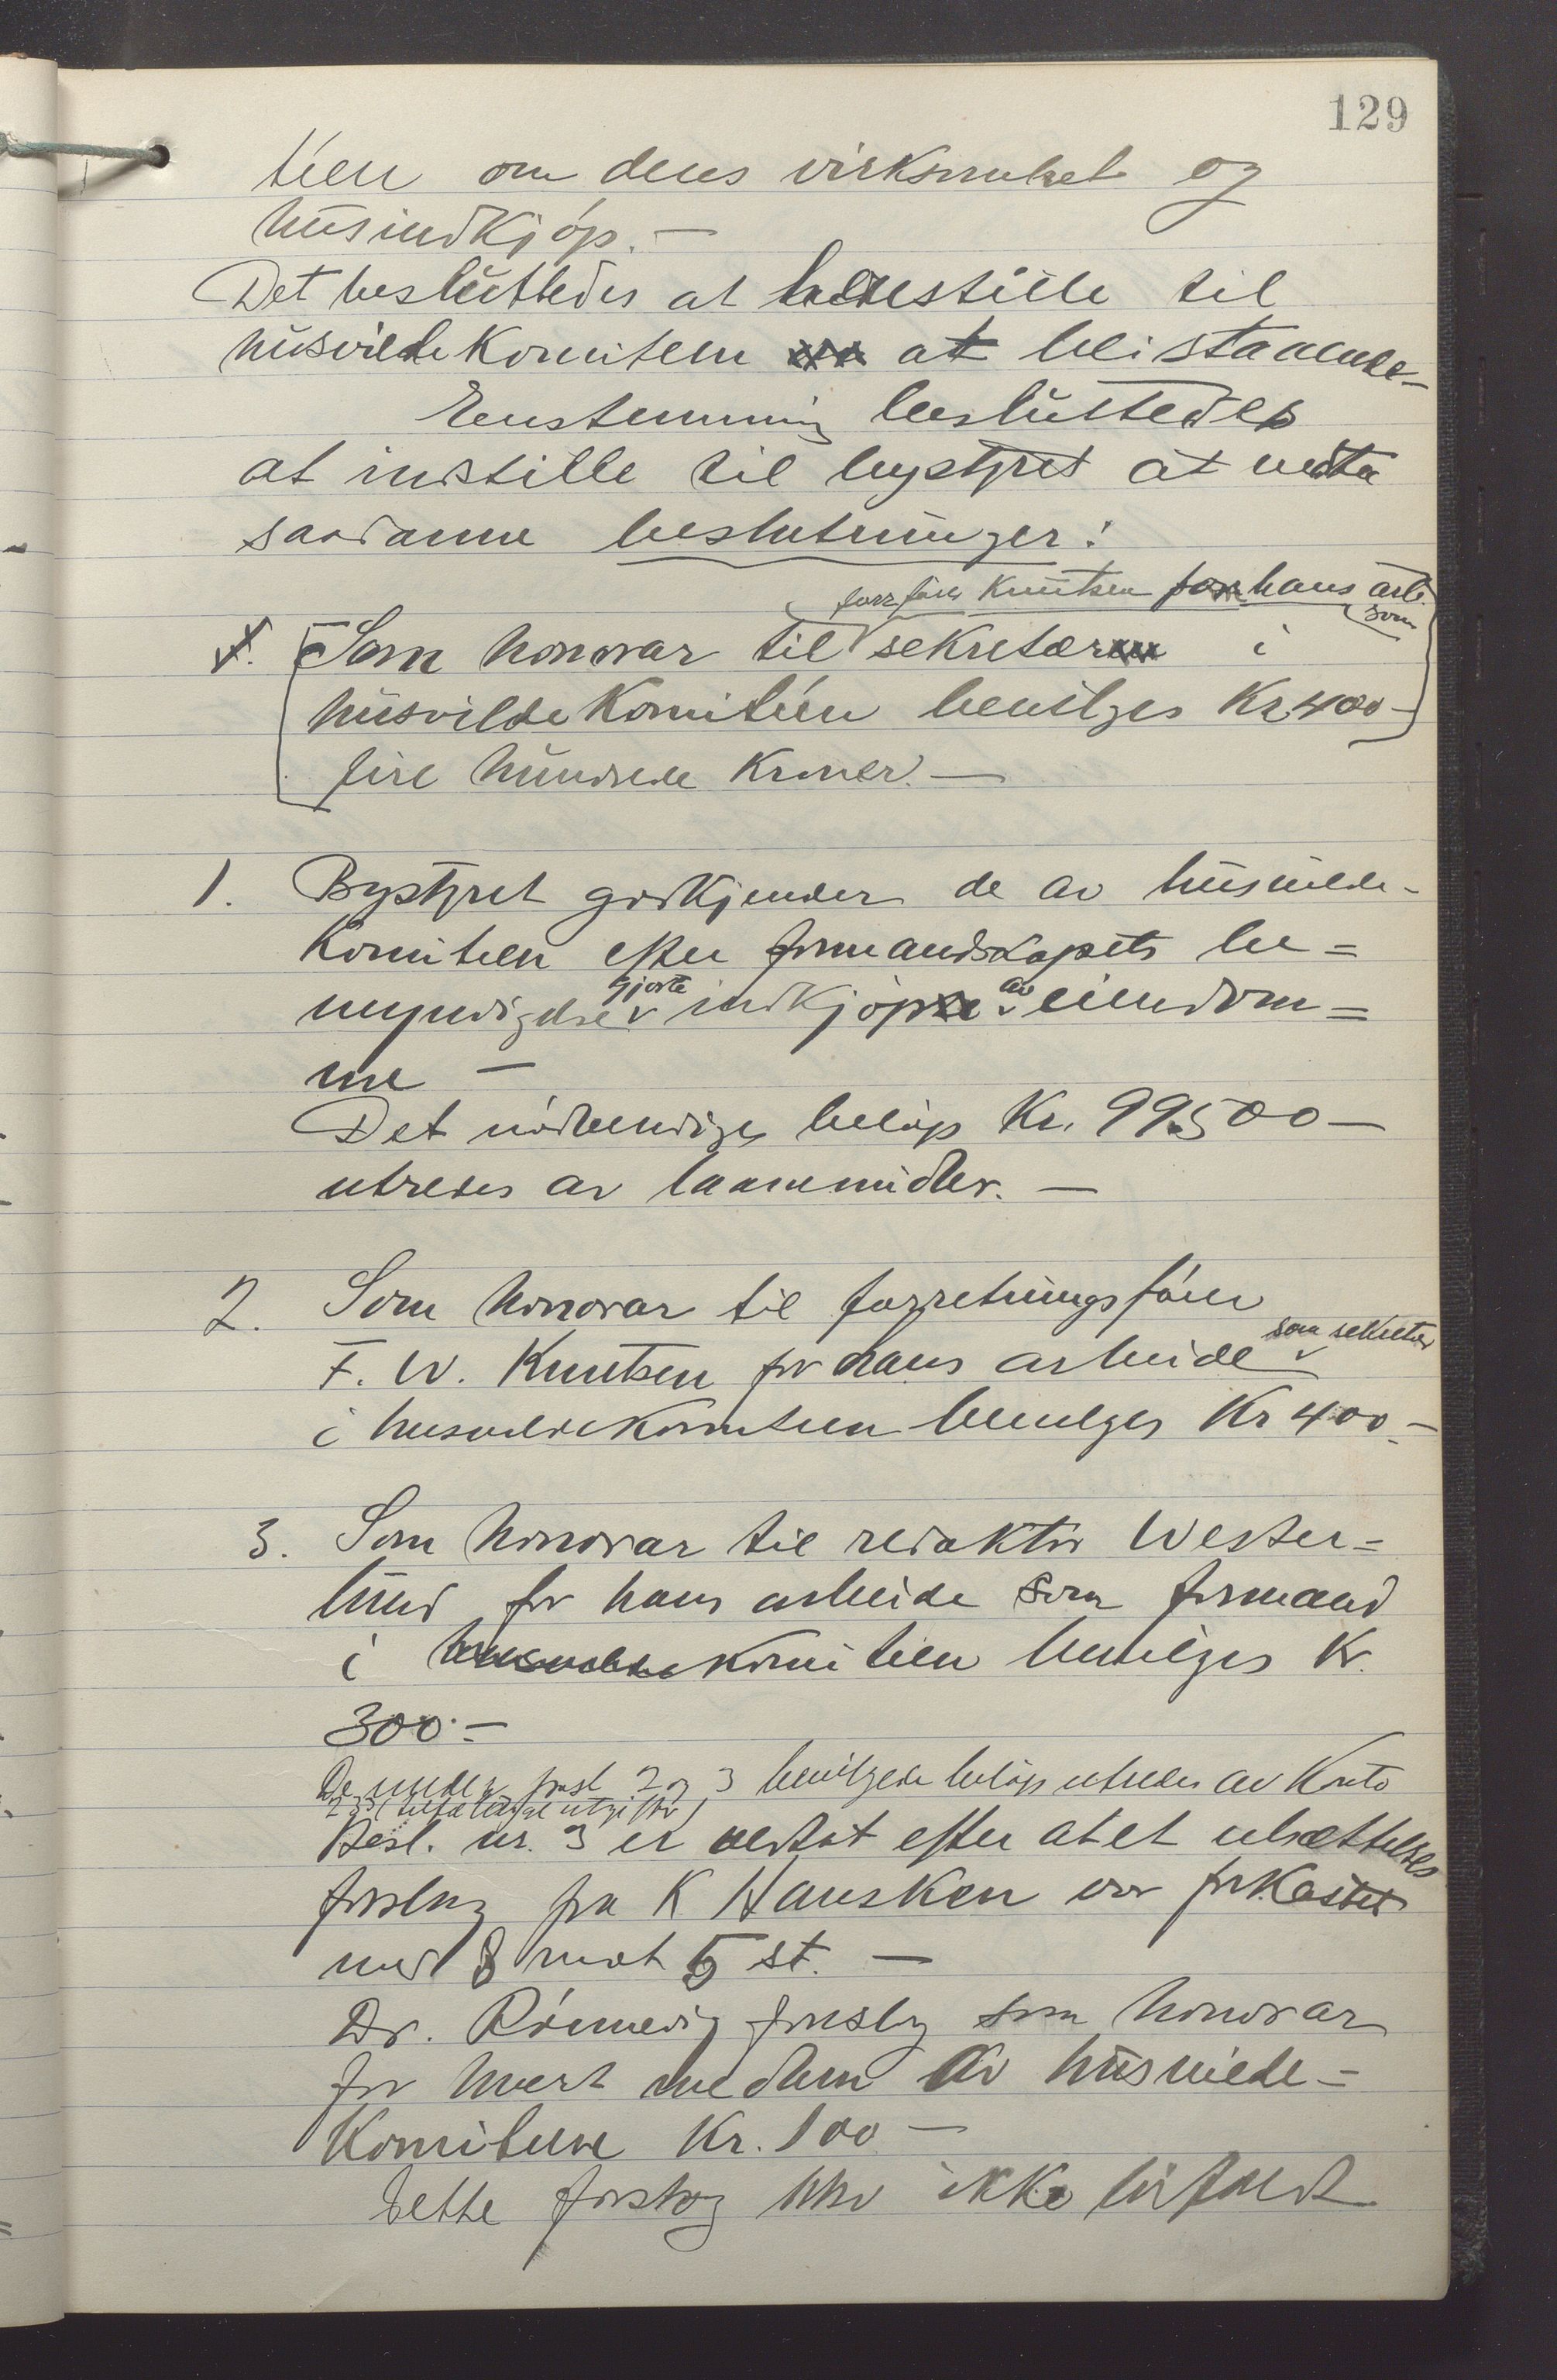 129
tieen om dens virksomhet og
husindkjøp. —
Det besluttedes at henstille til
husvildekomiteen at bli staaende —
Eenstemmig besluttedes
at indstille til bystyret at vedta
saadanne beslutninger:
forr.fører Knutsen for hans arb.
som
1. Som honorar til sekretæren i
husvildekomiteen bevilges Kr 400 —
fire hundrede kroner. —
1. Bystyret godkjender de av husvilde-
komiteen efter formandskapets be=
myndigelse gjorte indkjøp av eiendom=
me —
Det nødvendige beløp Kr. 99500 —
utredes av laanemidler. —
2. Som honorar til forretningsfører
F. W. Knutsen for hans arbeide som sekretær
i husvildekomiteen bevilges Kr 400. —
3. Som honorar til redaktør Wester=
lund for hans arbeide som formand
i husvildekomiteen bevilges Kr.
300. —
De under post 2 og 3 bevilgede beløp utredes av Konto
233 (tilfældige utgifter)
Besl. nr. 3 er vedtat efter at et utsættelses
forslag fra K Hausken var forkastet
med 8 mot 5 st. —
Dr. Rønnevig foreslog som honorar
for hvert medlem av husvilde=
komiteen Kr. 100 —
Dette forslag blev ikke bifaldt